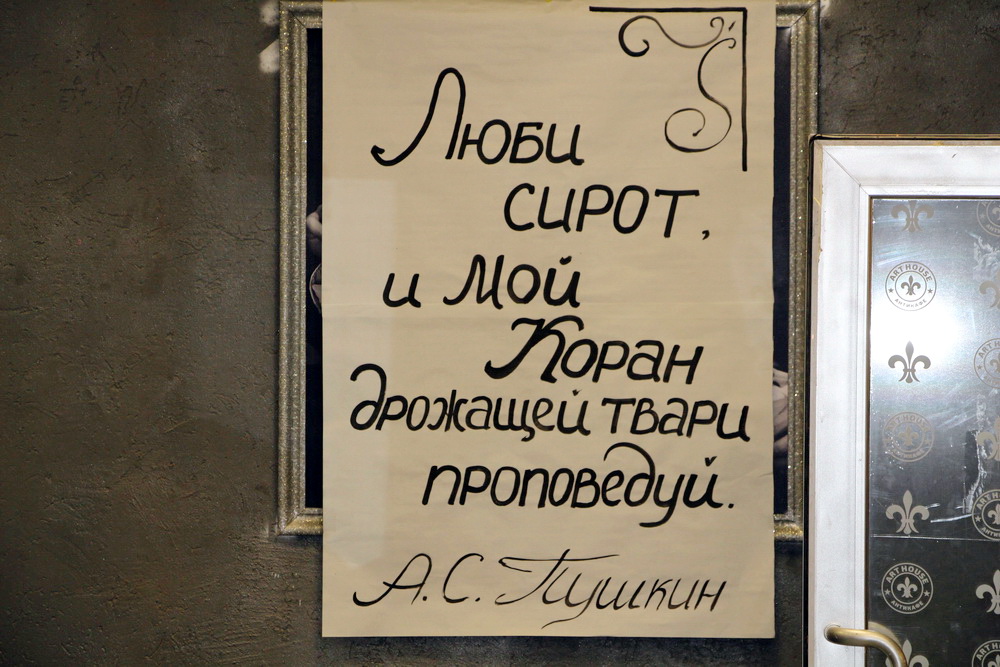 Люби
сирот,
и Мой
Коран
дрожащей твари
проповедуй.
А.С. Пушкин
ART HOUSE
АНТИКАФЕ
ART HOUSE
АНТИКАФЕ